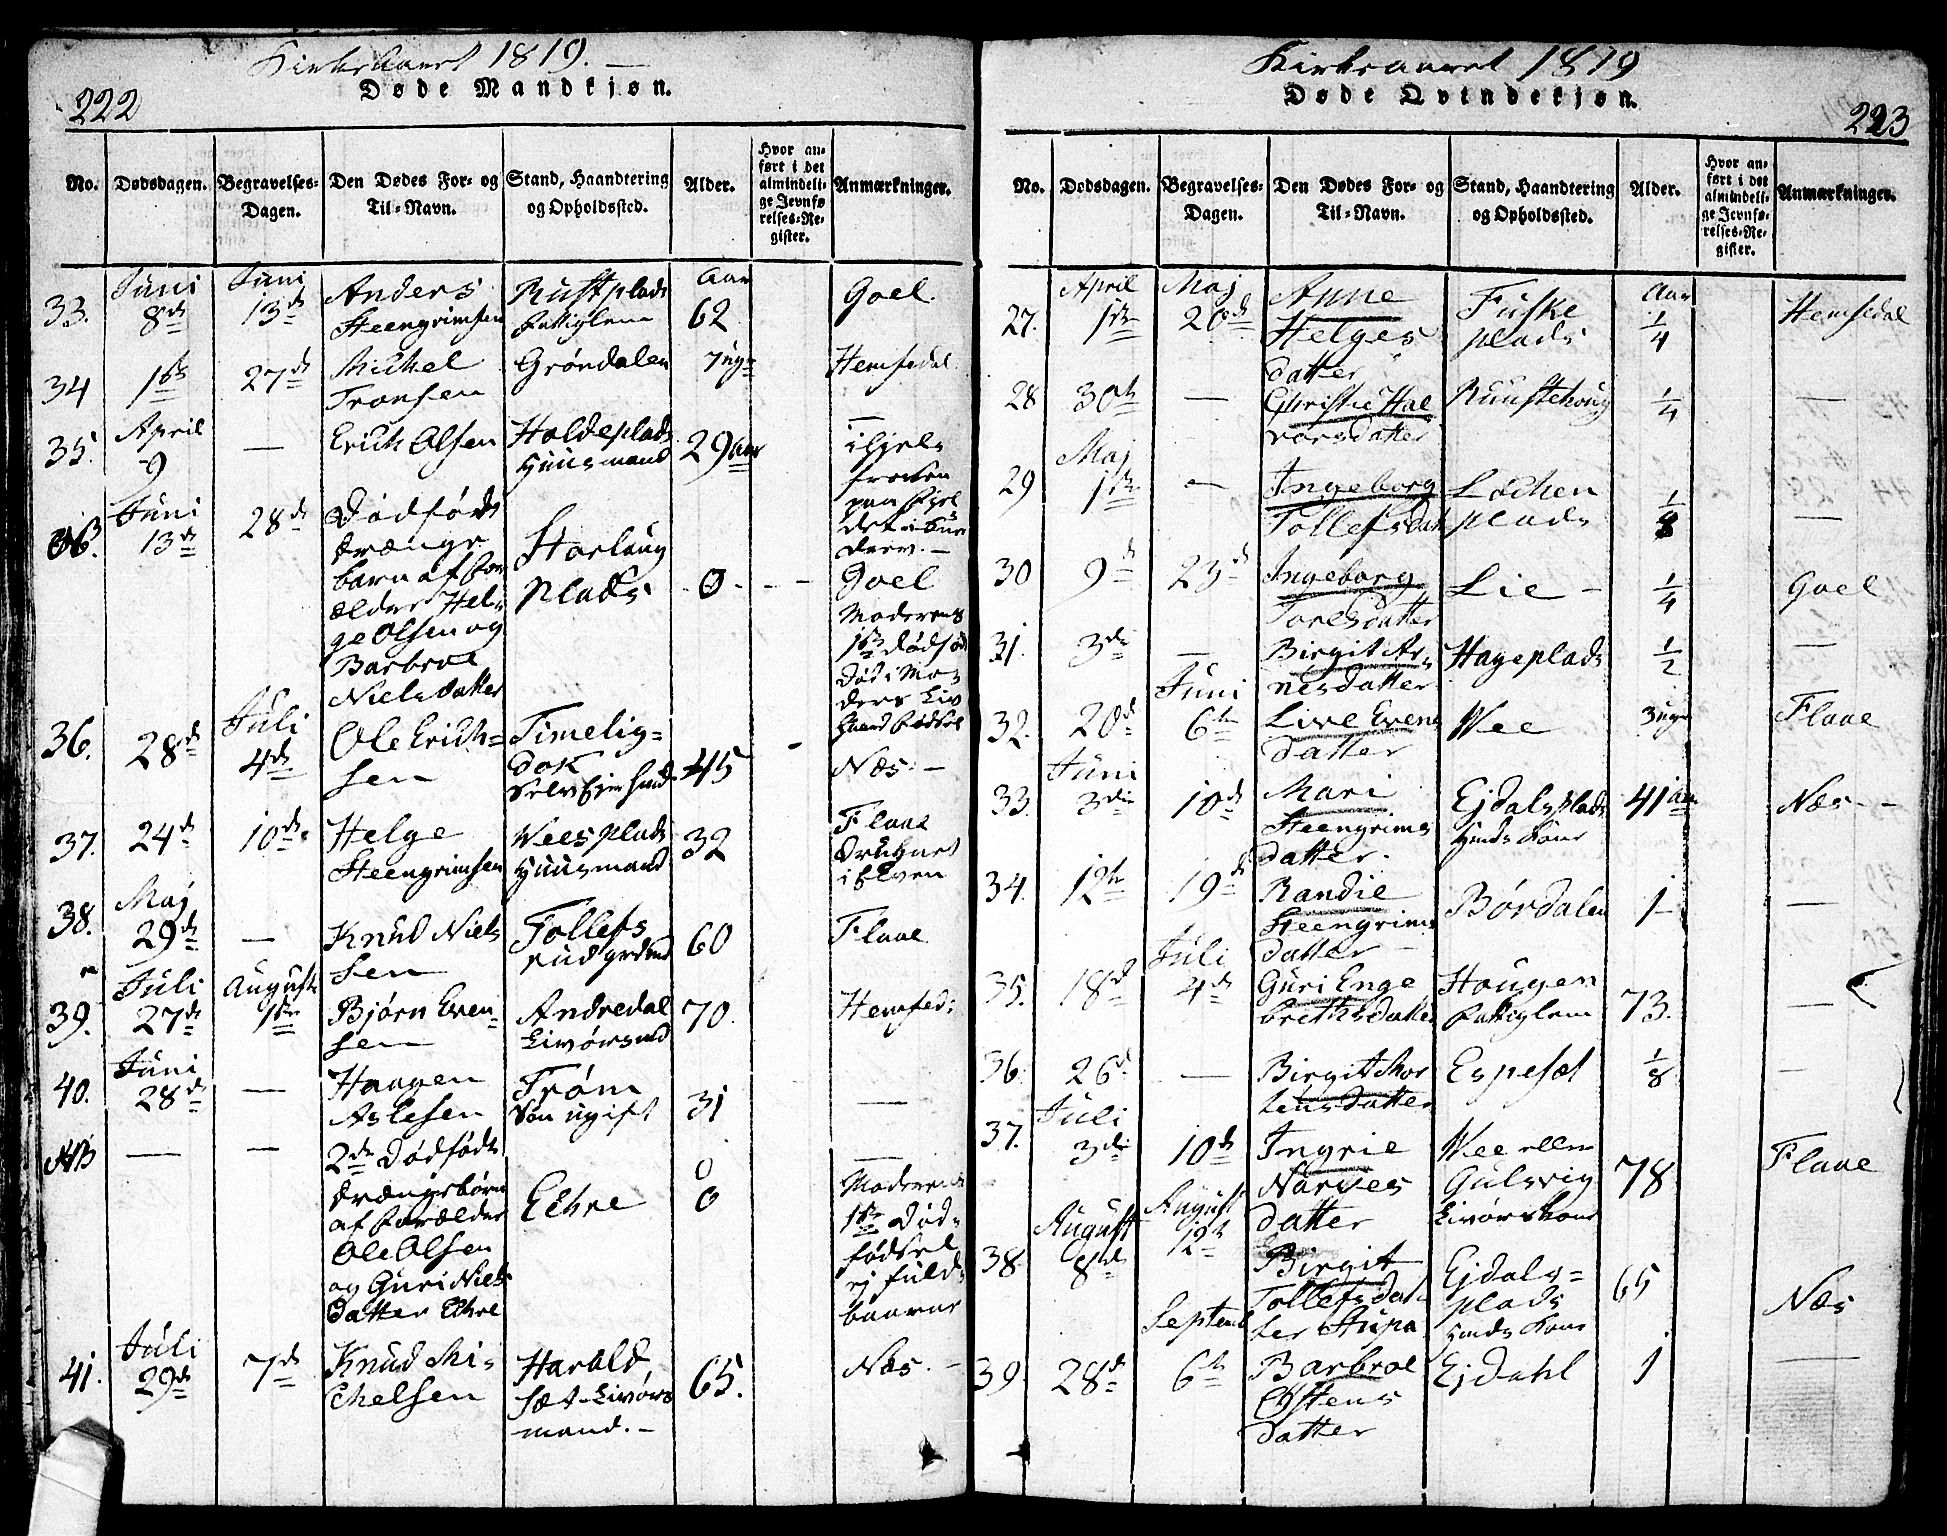 Kirkeaaret 1819.
222
Døde Mandkjøn.
No.
Dødsdagen.
Begravelses-
Dagen.
Den Dødes For- og
Til-Navn.
Stand, Haandtering
og Opholdssted.
Alder.
Hvor an-
ført i det
almindeli-
ge Jevnfø-
relses-Re-
gister.
Anmærkninger.
33.
Juni
8de
Juni
13de
Anders
Steengrimsen
Rustplads
Fattiglem
Aar
62
Goel.
34
1ste
27de
Michel
Tronsen
Grøndalen
7 Ug
Hemsedal
35.
April
9
—
Erich Olsen
Holdeplads
Huusmand
29 aar
—
ihjel
paa Fjel
det i
36.
Juni
13de
28de
Dødfødt
Drænge
barn af For
ældre Hel-
ge Olsen og
Barbroe
Nielsdatter
Plads
0
Goel
Moderens
1ste Dødfød
Død i Mo-
ders Liv
36.
28de
Juli
4de
Ole Erich-
sen
Timelig-
dok
45
Næs. —
37.
24de
10de
Helge
Steengrimsen
Weesplads
Huusmand
32
Flaae
Druknet
i Elven
38.
Maj
29de
—
Knud Niels
sen
Tollefs
rud
60
Flaae
39.
Juli
27de
August
1ste
Bjørn Even-
sen
Andredal
Livørsmd
70.
Hemsed:
40.
Juni
28de
—
Haagen
Aslesen
Trøm
Søn ugift
31
—
NB
—
—
2de Dødfødte
Drængebørn
af Forælder
Ole Olsen
og Guri Niels
Datter Ekre
Ekre
0
0
—
Moderens
1ste Død-
fødsel
ej fuld-
baarne
41.
Juli
29de
7de
Knud Mi-
chelsen
Harald
sæt-Livørs
mand. —
65.
Næs. —
Kirkeaaret 1819
223
Døde Qvindekjøn.
No.
Dødsdagen.
Begravelses-
Dagen.
Den Dødes For- og
Til-Navn.
Stand, Haandtering
og Opholdssted.
Alder.
Hvor an-
ført i det
almindeli-
ge Jevnfø-
relses-Re-
gister.
Anmærkninger.
27.
April
1ste
Maj
20de
Anne
Helges
datter
Fuske
plads
Aar
1/4
Hemsedal
28
30te
—
Christie Hal
vorsdatter
Ruustehoug
1/4
—
29
Maj
1ste
—
Ingeborg
Tollefsdat
Løchen
plads
1/8
—
30
9de
23de
Ingeborg
Toresdatter
Lie —
1/4
Goel
31.
3die
—
Birgit Ar-
nesdatter
Hageplads
1/2
—
32.
20de
Juni
6te
Live Evens
datter
Wee
3 uger
Flaae
33.
Juni
3die
10de
Mari
Steengrims
datter.
Ejdalsplads
Hmds Kone
41 aar
Næs —
34.
12te
19de
Randie
Steengrims
datter
Børdalen
1
—
35.
18de
Juli
4de
Guri Enge
brethsdatter
Hougen
Fattiglem
73.
—
36.
26de
—
Birgit Mor
tensdatter
Espeset
1/8
—
37.
Juli
3die
10de
Ingrie
Narves
datter
Wee ellem
Gulsvig
Livørskone
78
Flaae
38
August
8de
August
12te
Birgit
Tollefsdat-
ter Stupa
Ejdals-
plads
Hmds Kone
65
Næs
39
28de
Septemb
6te
Barbroe
Østens
datter
Ejdahl
1
—